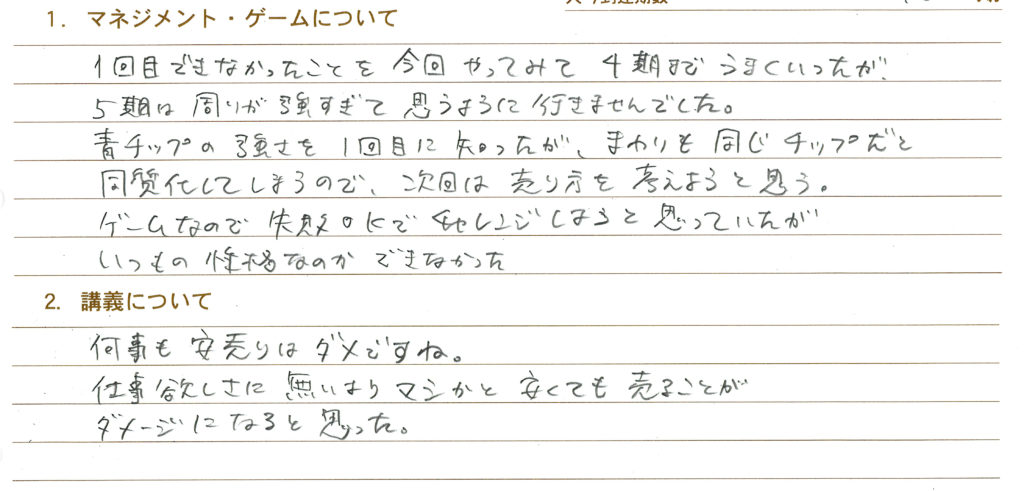 1. マネジメント・ゲームについて
1回目できなかったことを 今回 やってみて 4期まで うまくいったが、
5期は 周りが 強すぎて 思うように 行きませんでした。
青チップの 強さを 1回目に 知ったが、まわりも 同じ チップだと
同質化してしまうので、次回は 売り方を 考えようと 思う。
ゲームなので 失敗OKで チャレンジしようと 思っていたが
いつもの 性格なのか できなかった
2. 講義について
何事も 安売りは ダメですね。
仕事欲しさに 無いより マシかと 安くても 売ることが
ダメージになると 思った。